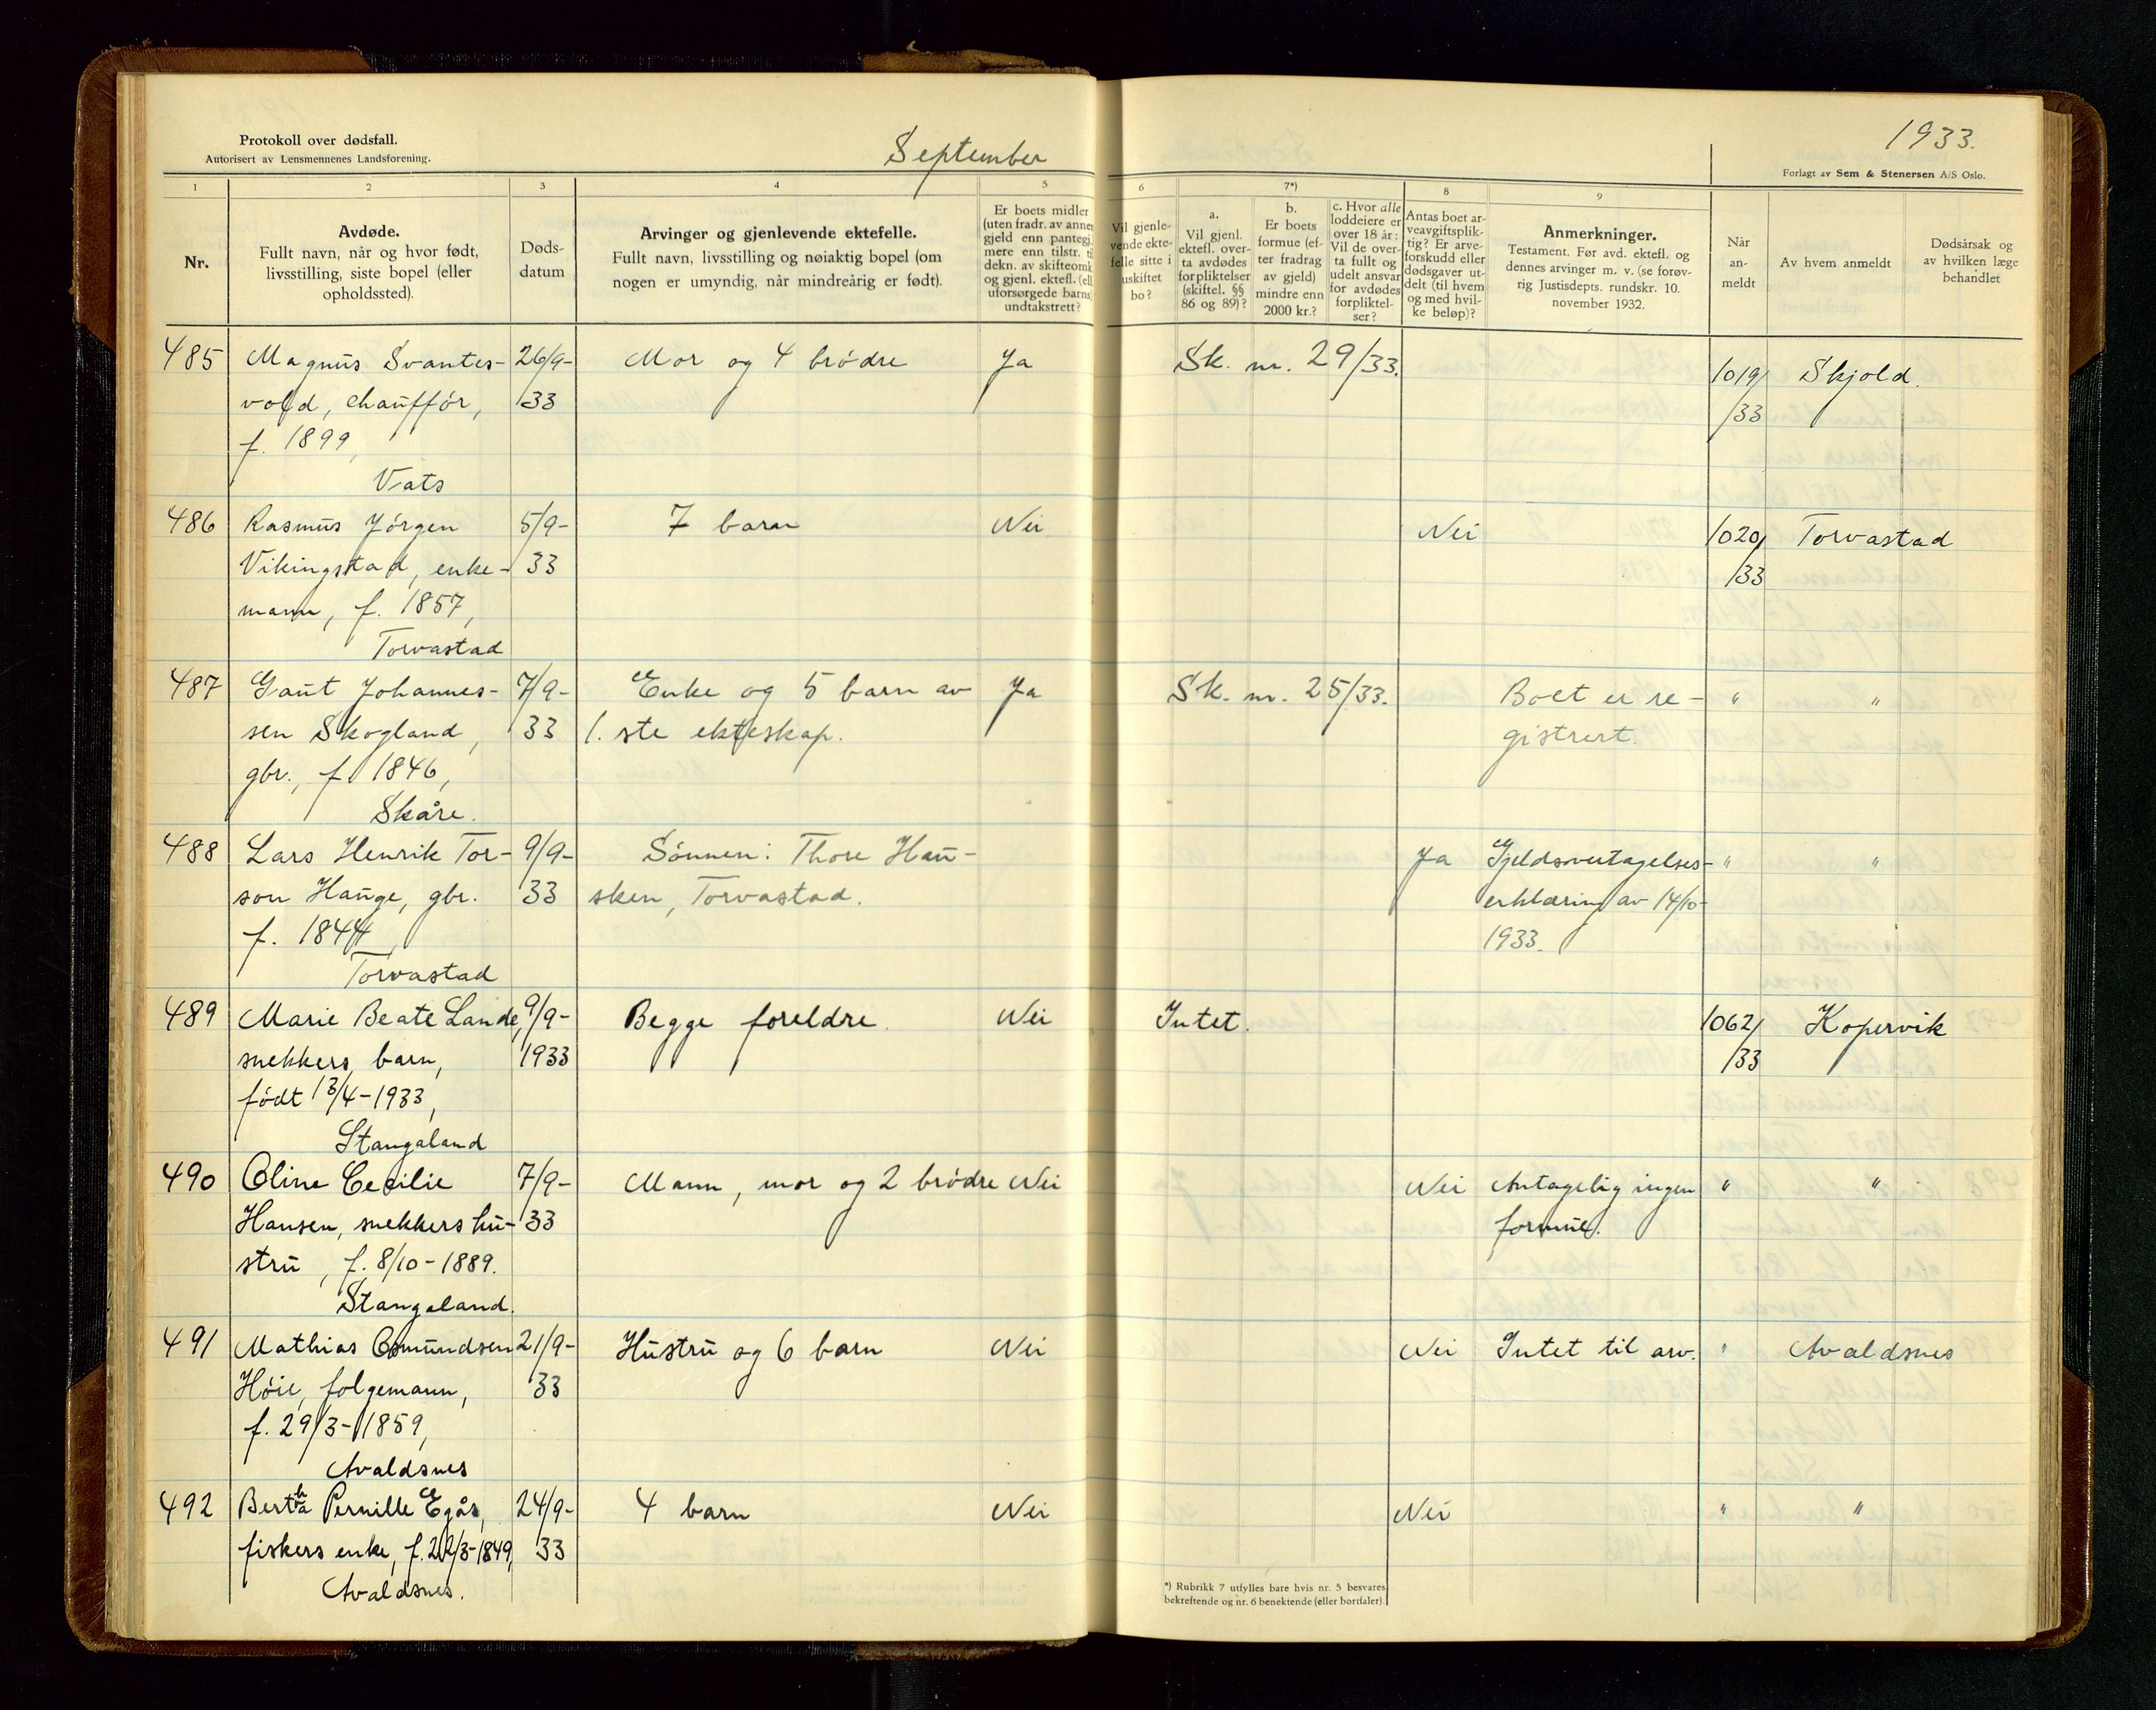 Protokoll over dødsfall.
Autorisert av Lensmennenes Landsforening.
September
1933.
Forlagt av Sem & Stenersen A/S Oslo.
1 2 3 4 5 6 7*) 8 9
Nr.
Avdøde.
Fullt navn, når og hvor født,
livsstilling, siste bopel (eller
opholdssted).
Døds-
datum
Arvinger og gjenlevende ektefelle.
Fullt navn, livsstilling og nøiaktig bopel (om
nogen er umyndig, når mindreårig er født).
Er boets midler
(uten fradr. av annen
gjeld enn pantegj.
mere enn tilstr. til
dekn. av skifteomk.
og gjenl. ektefl. (ell.
uforsørgede barns)
undtakstrett?
Vil gjenle-
vende ekte-
felle sitte i
uskiftet
bo?
a.
Vil gjenl.
ektefl. over-
ta avdødes
forpliktelser
(skiftel. §§
86 og 89)?
b.
Er boets
formue (ef-
ter fradrag
av gjeld)
mindre enn
2000 kr.?
c. Hvor alle
loddeiere er
over 18 år:
Vil de over-
ta fullt og
udelt ansvar
for avdødes
forpliktel-
ser?
Antas boet ar-
veavgiftsplik-
tig? Er arve-
forskudd eller
dødsgaver ut-
delt (til hvem
og med hvil-
ke beløp)?
Anmerkninger.
Testament. Før avd. ektefl. og
dennes arvinger m. v. (se forøv-
rig Justisdepts. rundskr. 10.
november 1932.
Når
an-
meldt
Av hvem anmeldt
Dødsårsak og
av hvilken læge
behandlet
485 Magnus Svantes- 26/9- Mor og 4 brødre Ja Sk. nr. 29/33. 1019/ Skjold.
vold, chauffør, 33 /33
f. 1899,
Vats
486 Rasmus Jørgen 5/9- 7 barn Nei Nei 1020/ Torvastad
Vikingstad, enke- 33 /33
mann, f. 1857,
Torvastad
487 Gaut Johannes- 7/9- Enke og 5 barn av Ja Sk. nr. 25/33. Boet er re- " "
sen Skogland, 33 1. ste ekteskap. gistrert.
gbr., f. 1846,
Skåre.
488 Lars Henrik Tor- 9/9- Sønnen: Thore Hau- Ja Gjeldsovertagelses- " "
son Hauge, gbr. 33 sken, Torvastad. erklæring av 14/10-
f. 1844, 1933.
Torvastad
489 Marie Beate Lande, 9/9- Begge foreldre. Nei Intet. 1062/ Kopervik
snekkers barn, 1933 /33
født 13/4-1933,
Stangaland
490 Oline Cecilie 7/9- Mann, mor og 2 brødre Nei Nei Antagelig ingen " "
Hansen, snekkers hu- 33 formue.
stru, f. 8/10-1889.
Stangaland.
491 Mathias Osmundsen 21/9- Hustru og 6 barn Nei Nei Intet til arv. " Avaldsnes
Høie, følgemann, 33
f. 29/3-1859,
Avaldsnes
492 Bertha Pernille Egås, 24/9- 4 barn Nei Nei " "
fiskers enke, f. 22/3-1849, 33
Avaldsnes.
*) Rubrikk 7 utfylles bare hvis nr. 5 besvares
bekreftende og nr. 6 benektende (eller bortfaler).